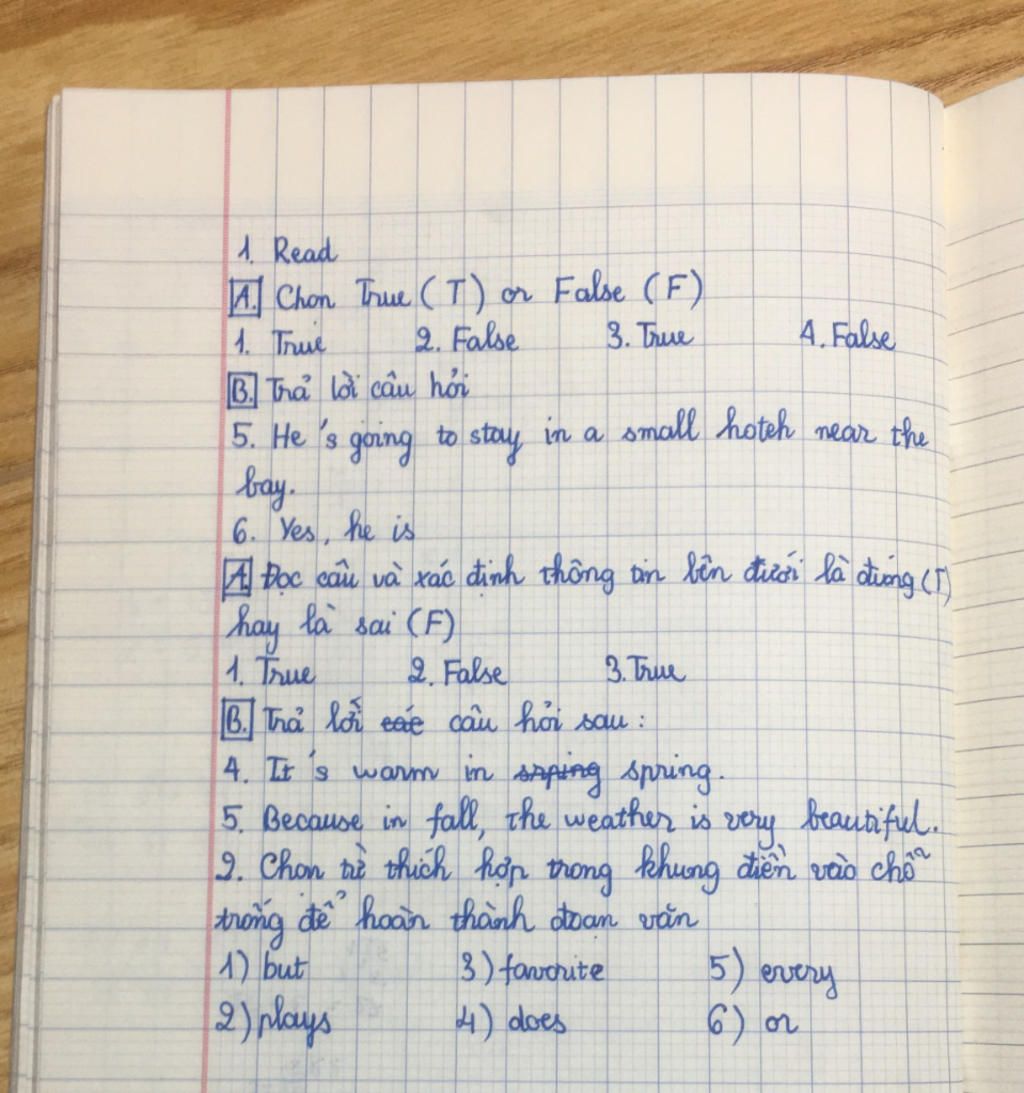 1. Read
A. Chọn True (T) or False (F)
1. True 2. False 3. True 4. False
B. Trả lời câu hỏi
5. He's going to stay in a small hoteh near the
bay.
6. Yes, he is
A. Đọc câu và xác định thông tin bên dưới là đúng (T)
hay là sai (F)
1. True 2. False 3. True
B. Trả lời các câu hỏi sau:
4. It's warm in srping spring.
5. Because in fall, the weather is very beautiful.
2. Chọn từ thích hợp trong khung điền vào chỗ
trống để hoàn thành đoạn văn
1) but 3) favorite 5) every
2) plays 4) does 6) or